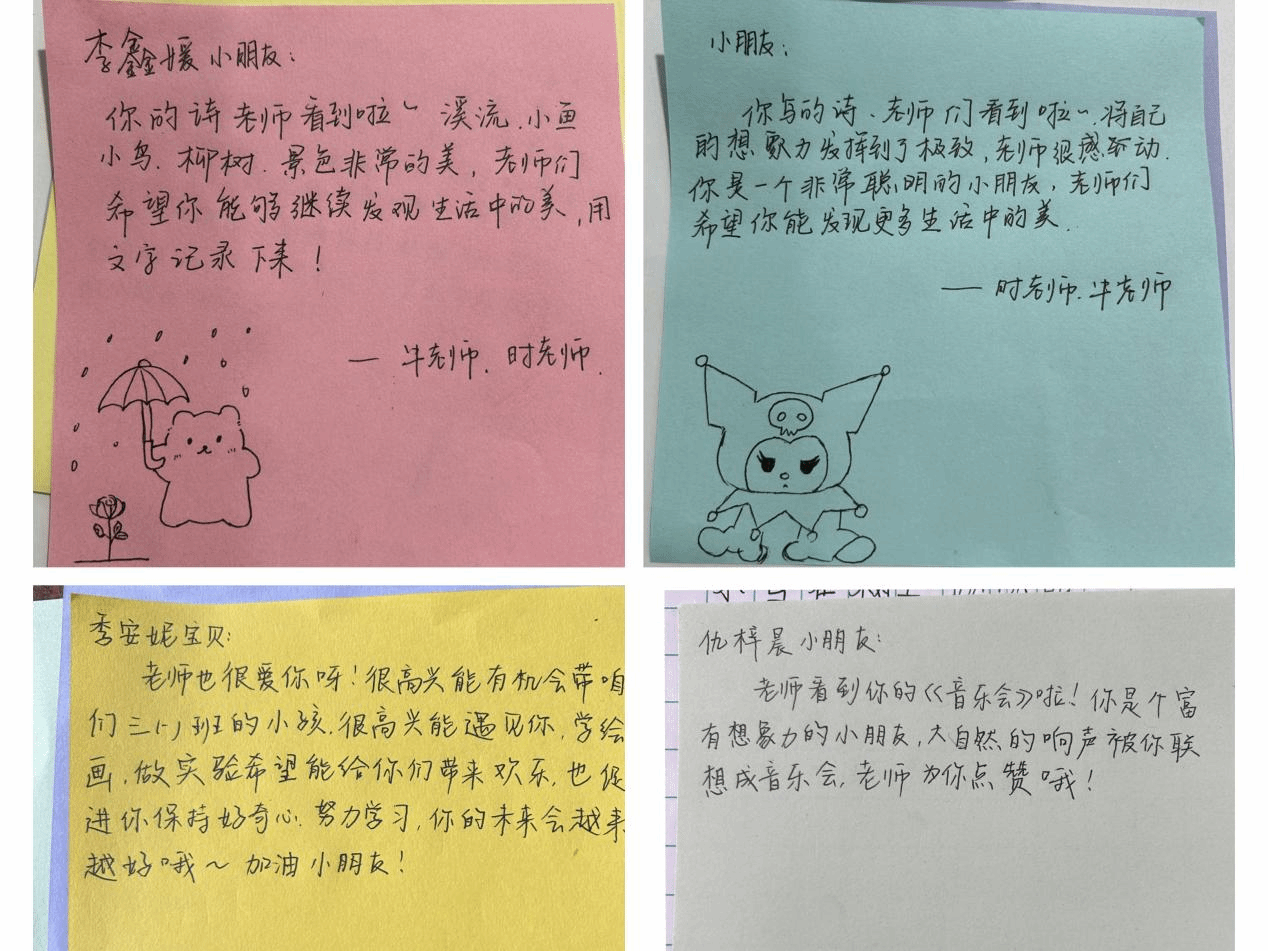 李鑫媛小朋友:
你的诗老师看到啦~ 溪流.小鱼
小鸟.柳树.景色非常的美,老师们
希望你能够继续发现生活中的美,用
文字记录下来!
— 牛老师.时老师.
小朋友:
你写的诗、老师们看到啦~.将自己
的想象力发挥到了极致,老师很感动.
你是一个非常聪明的小朋友,老师们
希望你能发现更多生活中的美..
— 时老师.牛老师
季安妮宝贝:
老师也很爱你呀!很高兴能有机会带咱
们三(1)班的小孩.很高兴能遇见你,学绘
画,做实验希望能给你们带来欢乐,也促
进你保持好奇心.努力学习,你的未来会越来
越好哦~ 加油小朋友!
仇梓晨小朋友:
老师看到你的《音乐会》啦!你是个富
有想象力的小朋友,大自然的响声被你联
想成音乐会,老师为你点赞哦!